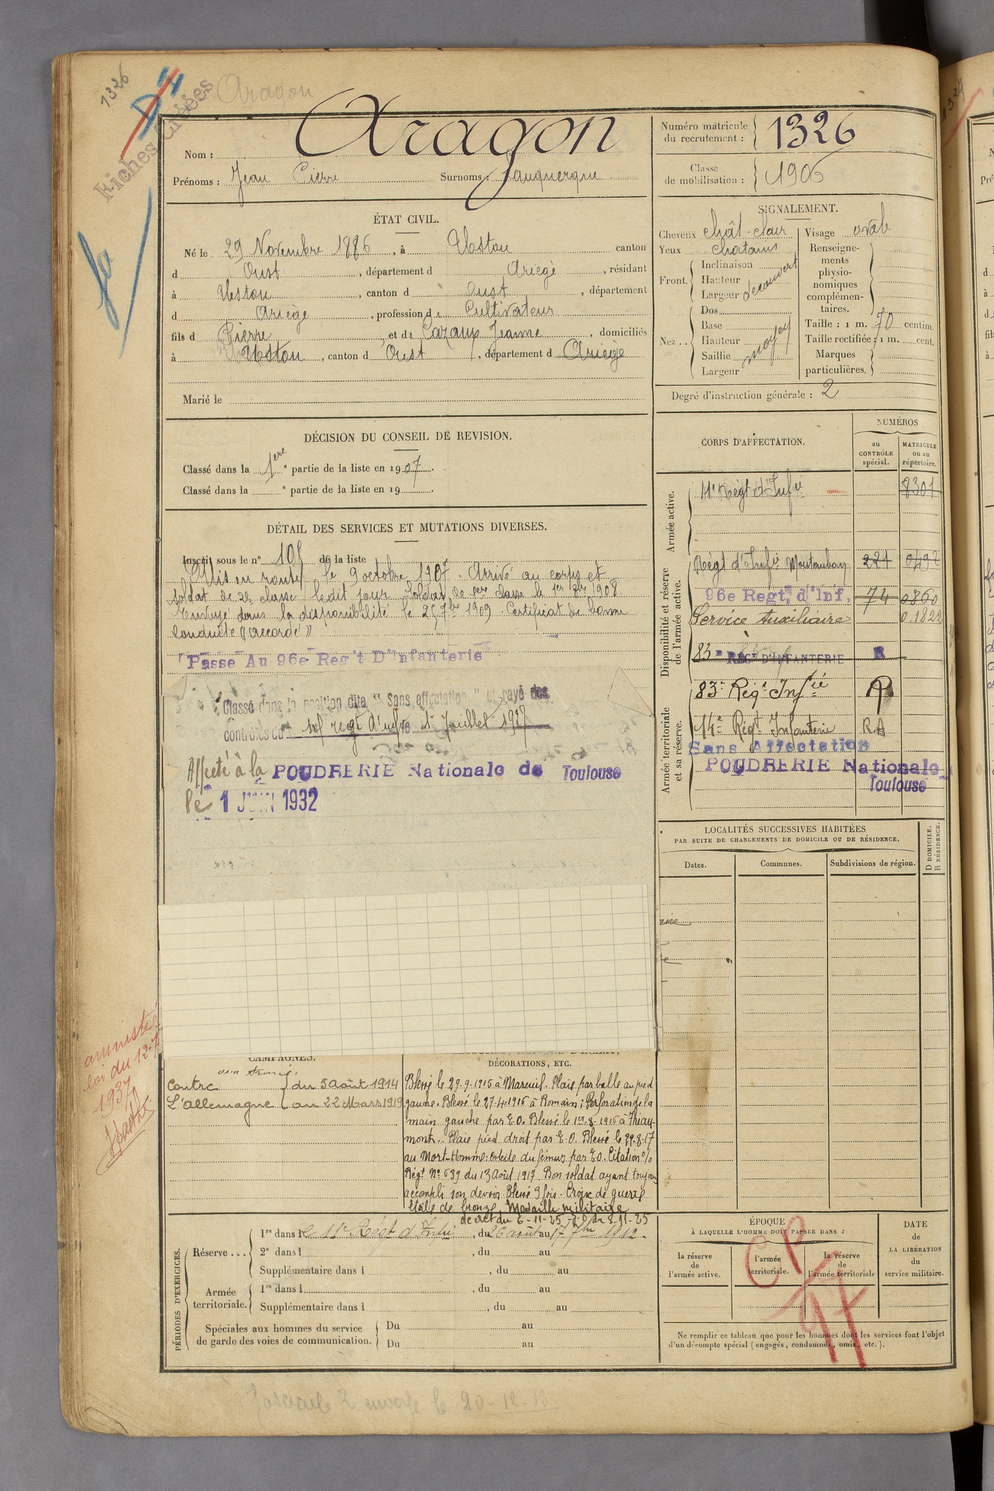 1326
Aragon
Fiches Créées
Nom : Aragon
Prénoms : Jean Pierre Surnoms :
Numéro matricule du recrutement : 1326
Classe de mobilisation : 1906
ÉTAT CIVIL.
Né le 29 Novembre 1886, à Ustou canton
d Oust, département d Ariège, résidant
à Ustou, canton d Oust, département
d Ariège, profession de Cultivateur
fils d Pierre et de Cazaux Jeanne, domiciliés
à Ustou, canton d Oust, département d Ariège
Marié le
SIGNALEMENT.
Cheveux chât-clair
Yeux chatains
Front. Inclinaison
Hauteur
Largeur découvert
Nez... Dos
Base
Hauteur
Saillie
Largeur moyen
Visage ovale
Renseignements physionomiques complémentaires.
Taille : 1 m. 70 centim.
Taille rectifiée : 1 m. cent.
Marques particulières.
Degré d'instruction générale : 2
DÉCISION DU CONSEIL DE REVISION.
Classé dans la 1ère partie de la liste en 1907.
Classé dans la e partie de la liste en 19
DÉTAIL DES SERVICES ET MUTATIONS DIVERSES.
Inscrit sous le n° 105 de la liste
Mis en route le 9 octobre 1907. Arrivé au corps et
soldat de 2e classe ledit jour. Soldat de 1ère classe le 1er 1908
Envoyé dans la disponibilité le 25 7bre 1909. Certificat de bonne
conduite "accordé"
Passé Au 96e Reg't D'Infanterie
Classé dans la position dite "Sans affectation" et rayé des
contrôles du
Affecté à la POUDRERIE Nationale de Toulouse
le 1 JUIN 1932
CORPS D'AFFECTATION.
NUMÉROS
au CONTRÔLE spécial.
MATRICULE ou au répertoire.
Armée active.
Régt d'Infie 8301
Disponibilité et réserve de l'armée active.
Régt d'Infie Montauban 221 0492
96e Regt. d'Inf. 74 0860
Service Auxiliaire 0.1822
83e REG. D'INFANTERIE R
Armée territoriale et sa réserve.
83e Régt Infie R
14e Régt Infanterie RA
Sans Affectation
POUDRERIE Nationale
Toulouse
LOCALITÉS SUCCESSIVES HABITÉES
PAR SUITE DE CHANGEMENTS DE DOMICILE OU DE RÉSIDENCE.
Dates.
Communes.
Subdivisions de région.
D DOMICILE.
R RÉSIDENCE.
amnistié
loi du 12-7
1937
CAMPAGNES.
Contre
L'allemagne
du 5 août 1914
au 22 Mars 1919
DÉCORATIONS, ETC.
Blessé le 29-9-1915 à Mareuil. Plaie par balle au pied
gauche. Blessé le 27-4-1916 à Romain; Perforation de la
main gauche par E.O. Blessé le 19-8-1916 à Thiau-
mont. Plaie pied droit par E.O. Blessé le 29-8-17
au Mort-Homme du fémur par E.O. Citation %
Régt N° 639 du 13 Août 1917. Bon soldat ayant toujours
accompli son devoir. Blessé 3 fois. Croix de guerre
étoile de bronze. Médaille militaire
décret du 6-11-25 J.O. du 8-11-25
PÉRIODES D'EXERCICES.
Réserve... 1re dans le Régt d'Infie, du 26 août au 17 7bre 1912.
2e dans l , du au
Supplémentaire dans l , du au
Armée territoriale. 1re dans l , du au
Supplémentaire dans l , du au
Spéciales aux hommes du service de garde des voies de communication. Du au
Du au
ÉPOQUE
À LAQUELLE L'HOMME DOIT PASSER DANS :
la réserve de l'armée active.
l'armée territoriale.
la réserve de l'armée territoriale
DATE DE LA LIBÉRATION du service militaire.
CP
97
Ne remplir ce tableau que pour les hommes dont les services font l'objet
d'un décompte spécial (engagés, condamnés, omis, etc.).
fascicule Z envoyé le 20-12-13